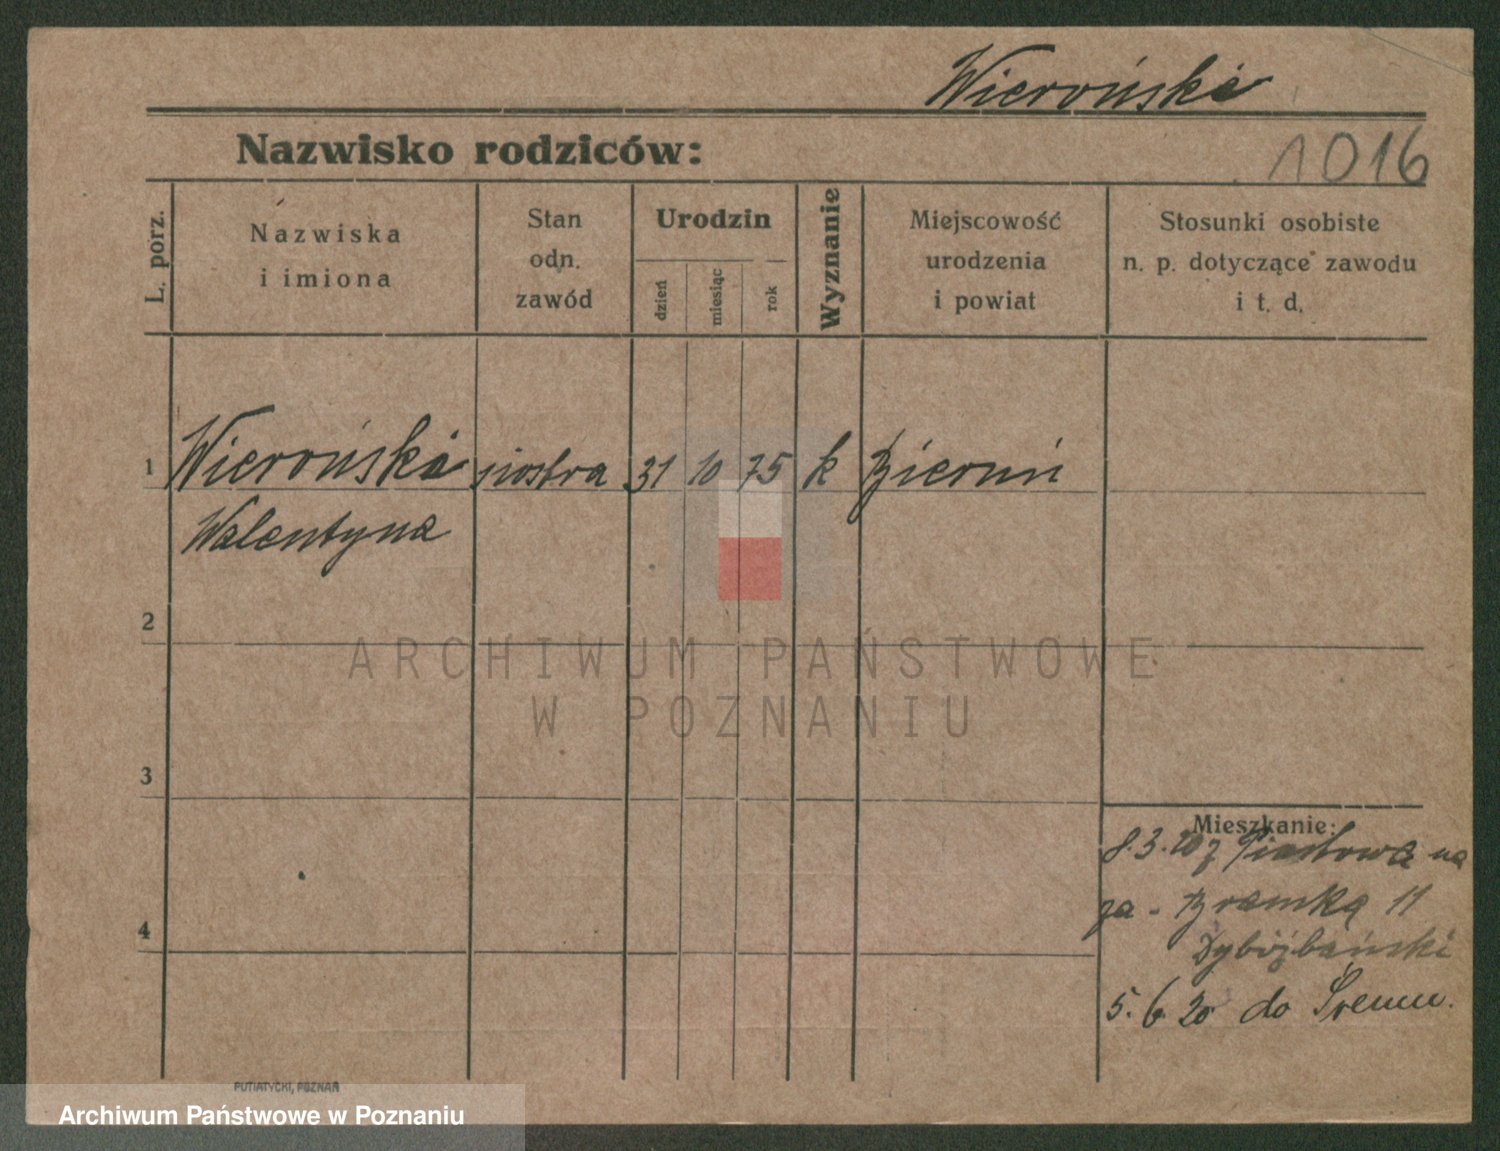 Wierońska
Nazwisko rodziców:
1016
L. porz.
Nazwiska
i imiona
Stan
odn.
zawód
Urodzin
dzień
miesiąc
rok
Wyznanie
Miejscowość
urodzenia
i powiat
Stosunki osobiste
n. p. dotyczące zawodu
i t. d.
1 Wierońska siostra 31 10 75 k Bierun
Walentyna
2
ARCHIWUM PAŃSTWOWE
W POZNANIU
3
Mieszkanie:
8.3.20 z Piastowa na
za - Bramką 11
4
Dybizbański
5.6.20 do Śremu.
PUTIATYCKI, POZNAŃ
Archiwum Państwowe w Poznaniu